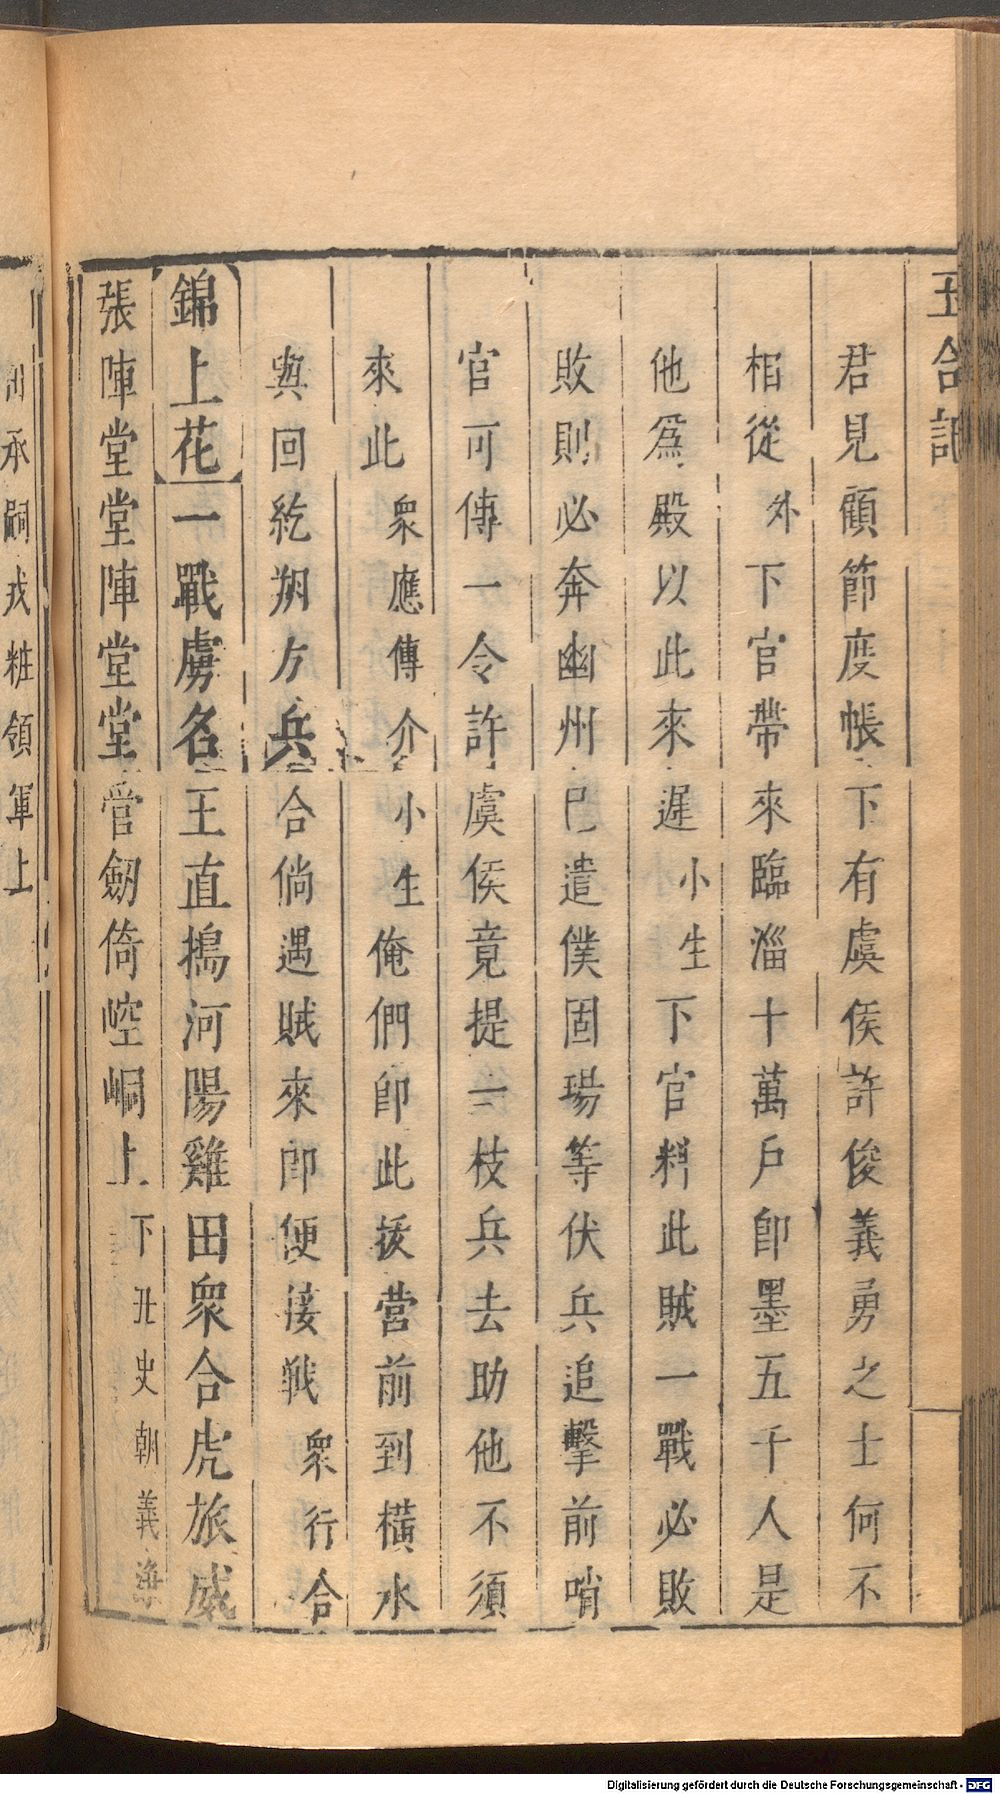 玉合記
君見顧節度帳下有虞侯許俊義勇之士何不
相從外下官帶來臨淄十萬戶卽墨五千人是
他爲殿以此來遲小生下官料此賊一戰必敗
敗則必奔幽州已遣僕固瑒等伏兵追擊前哨
官可傳一令許虞侯竟提一枝兵去助他不須
來此衆應傳介小生俺們卽此拔營前到橫水
與回紇朔方兵合倘遇賊來卽便接戰衆行合
錦上花一戰虜名王直搗河陽雞田衆合虎旅威
張陣堂堂陣堂堂營劒倚崆峒上下丑史朝義海
承嗣戎粧領軍上
Digitalisierung gefördert durch die Deutsche Forschungsgemeinschaft - DFG